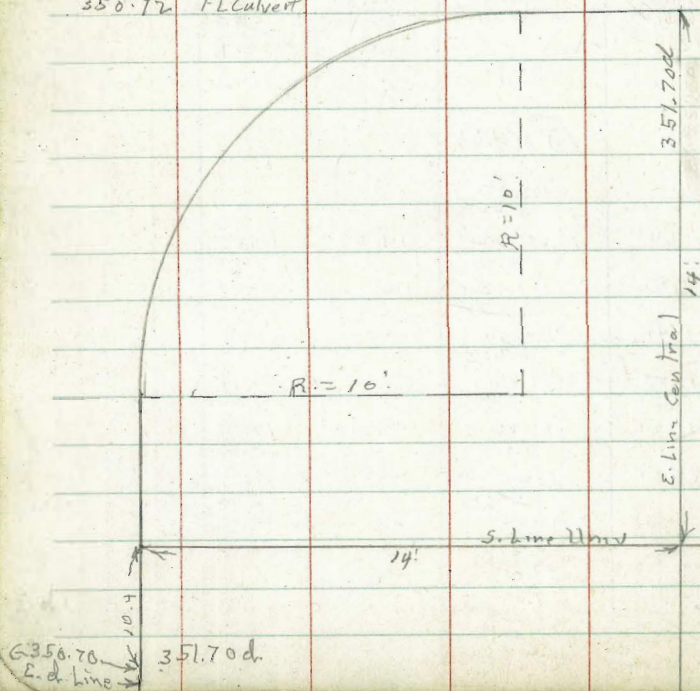 350.72 FL Culvert
351.70d
R=10'
14'
R.=10'
E. Line Central
S. Line Univ
14'
10.4
G350.70 351.70d
E.d. Line